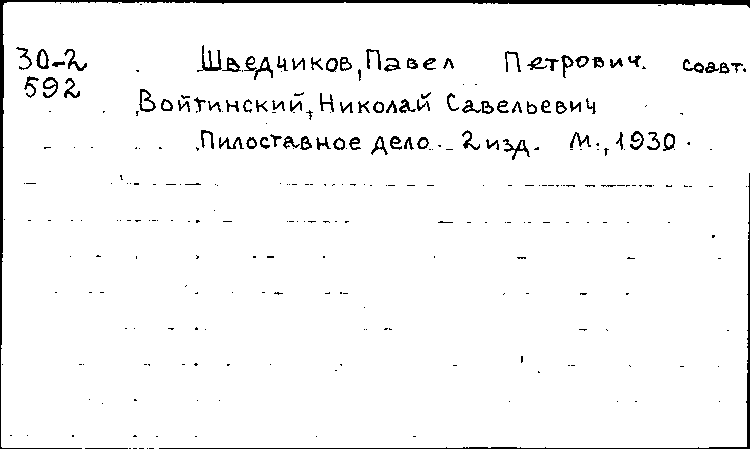 30-2 Шведчиков, Павел Петрович. соавт.
592
Войтинский, Николай Савельевич
Пилоставное дело. 2 изд. М., 1930.